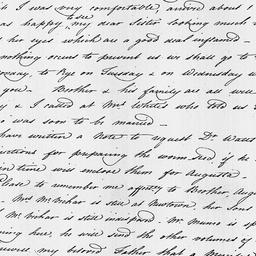 I was very comfortable, arrived about 1
as happy to see my dear Sister looking much
her eyes which are a good deal inflamed -
nothing occurs to prevent us we shall go to
to Rye on Tuesday & on Wednesday w
you - Brother & his family are all well
y & I called at Mrs Whites who told us
was soon to be married -
have written a Note to request Dr
uctions for preparing the worm seed if he
in time will enclose them for Augusta -
Please to remember me affectly to Brother, Aug
Mrs McVicar is still at Newtown, her sons
McVicar is still indisposed. Mr Munro is
ming here, he will send the other volumes of
my beloved Father that a